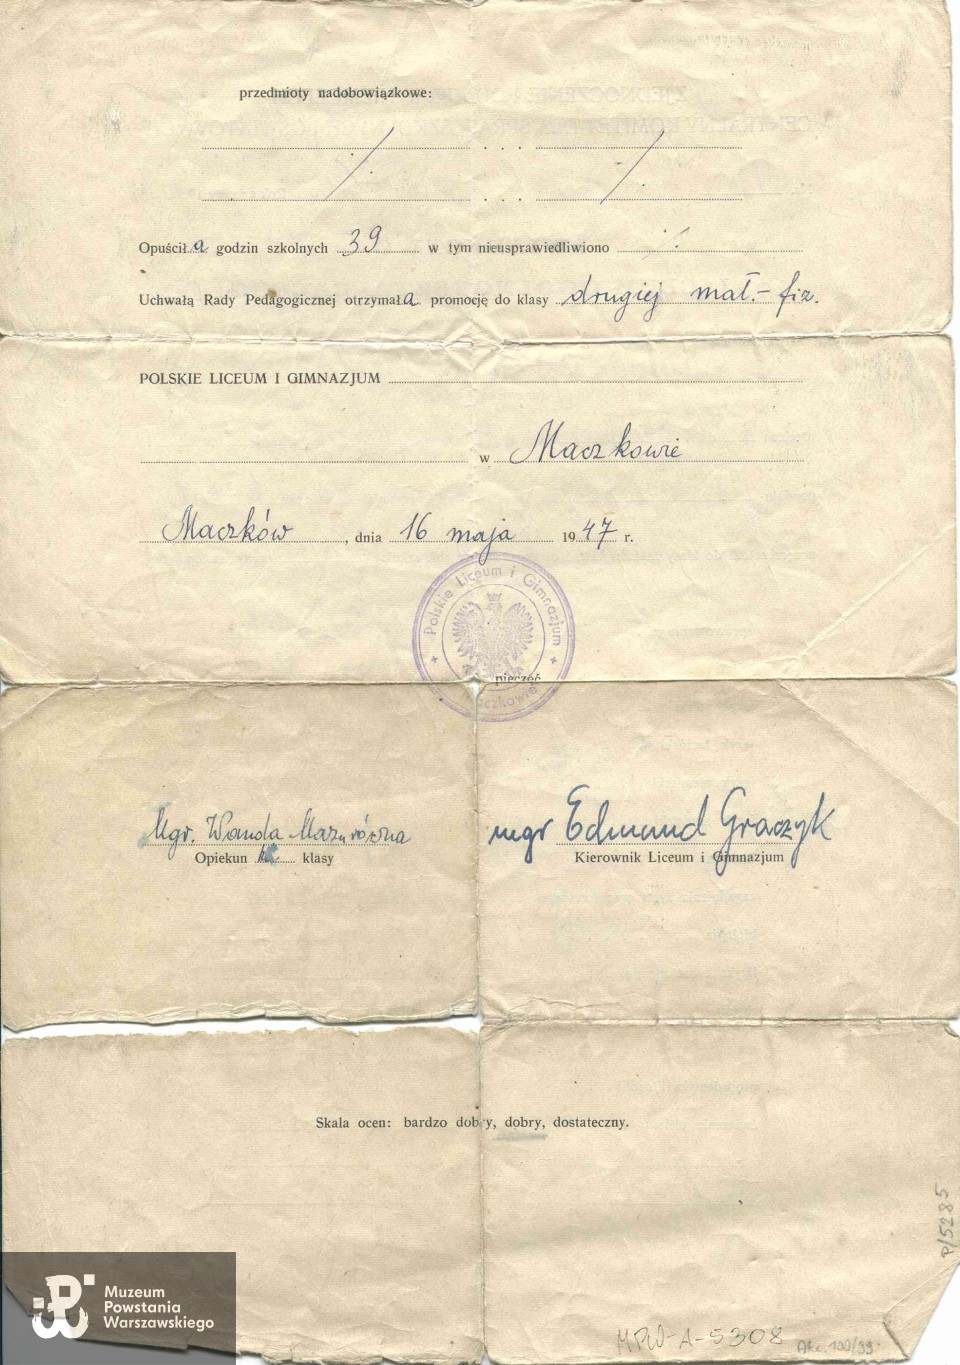 przedmioty nadobowiązkowe:
Opuścił a godzin szkolnych 39 w tym nieusprawiedliwiono
Uchwałą Rady Pedagogicznej otrzymał a promocję do klasy drugiej mat.-fiz.
POLSKIE LICEUM I GIMNAZJUM
w Maczkowie
Maczków, dnia 16 maja 1947 r.
Polskie Liceum i Gimnazjum
pieczęć
Mgr. Wanda Mazurówna
mgr Edmund Graczyk
Opiekun klasy
Kierownik Liceum i Gimnazjum
Skala ocen: bardzo dobry, dobry, dostateczny.
P/5285
Muzeum
Powstania
Warszawskiego
MPW-A-5308
Akc. 100/99